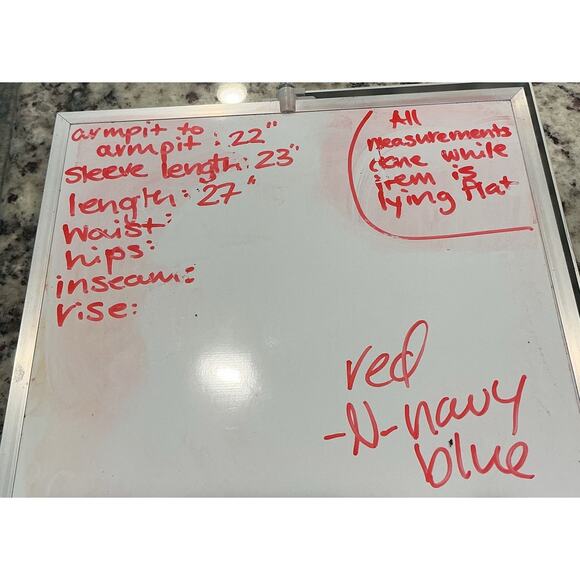 armpit to
armpit : 22"
sleeve length: 23"
length: 27"
Waist:
hips:
inseam:
rise:
All
measurements
done while
item is
lying flat
red
-N- navy
blue